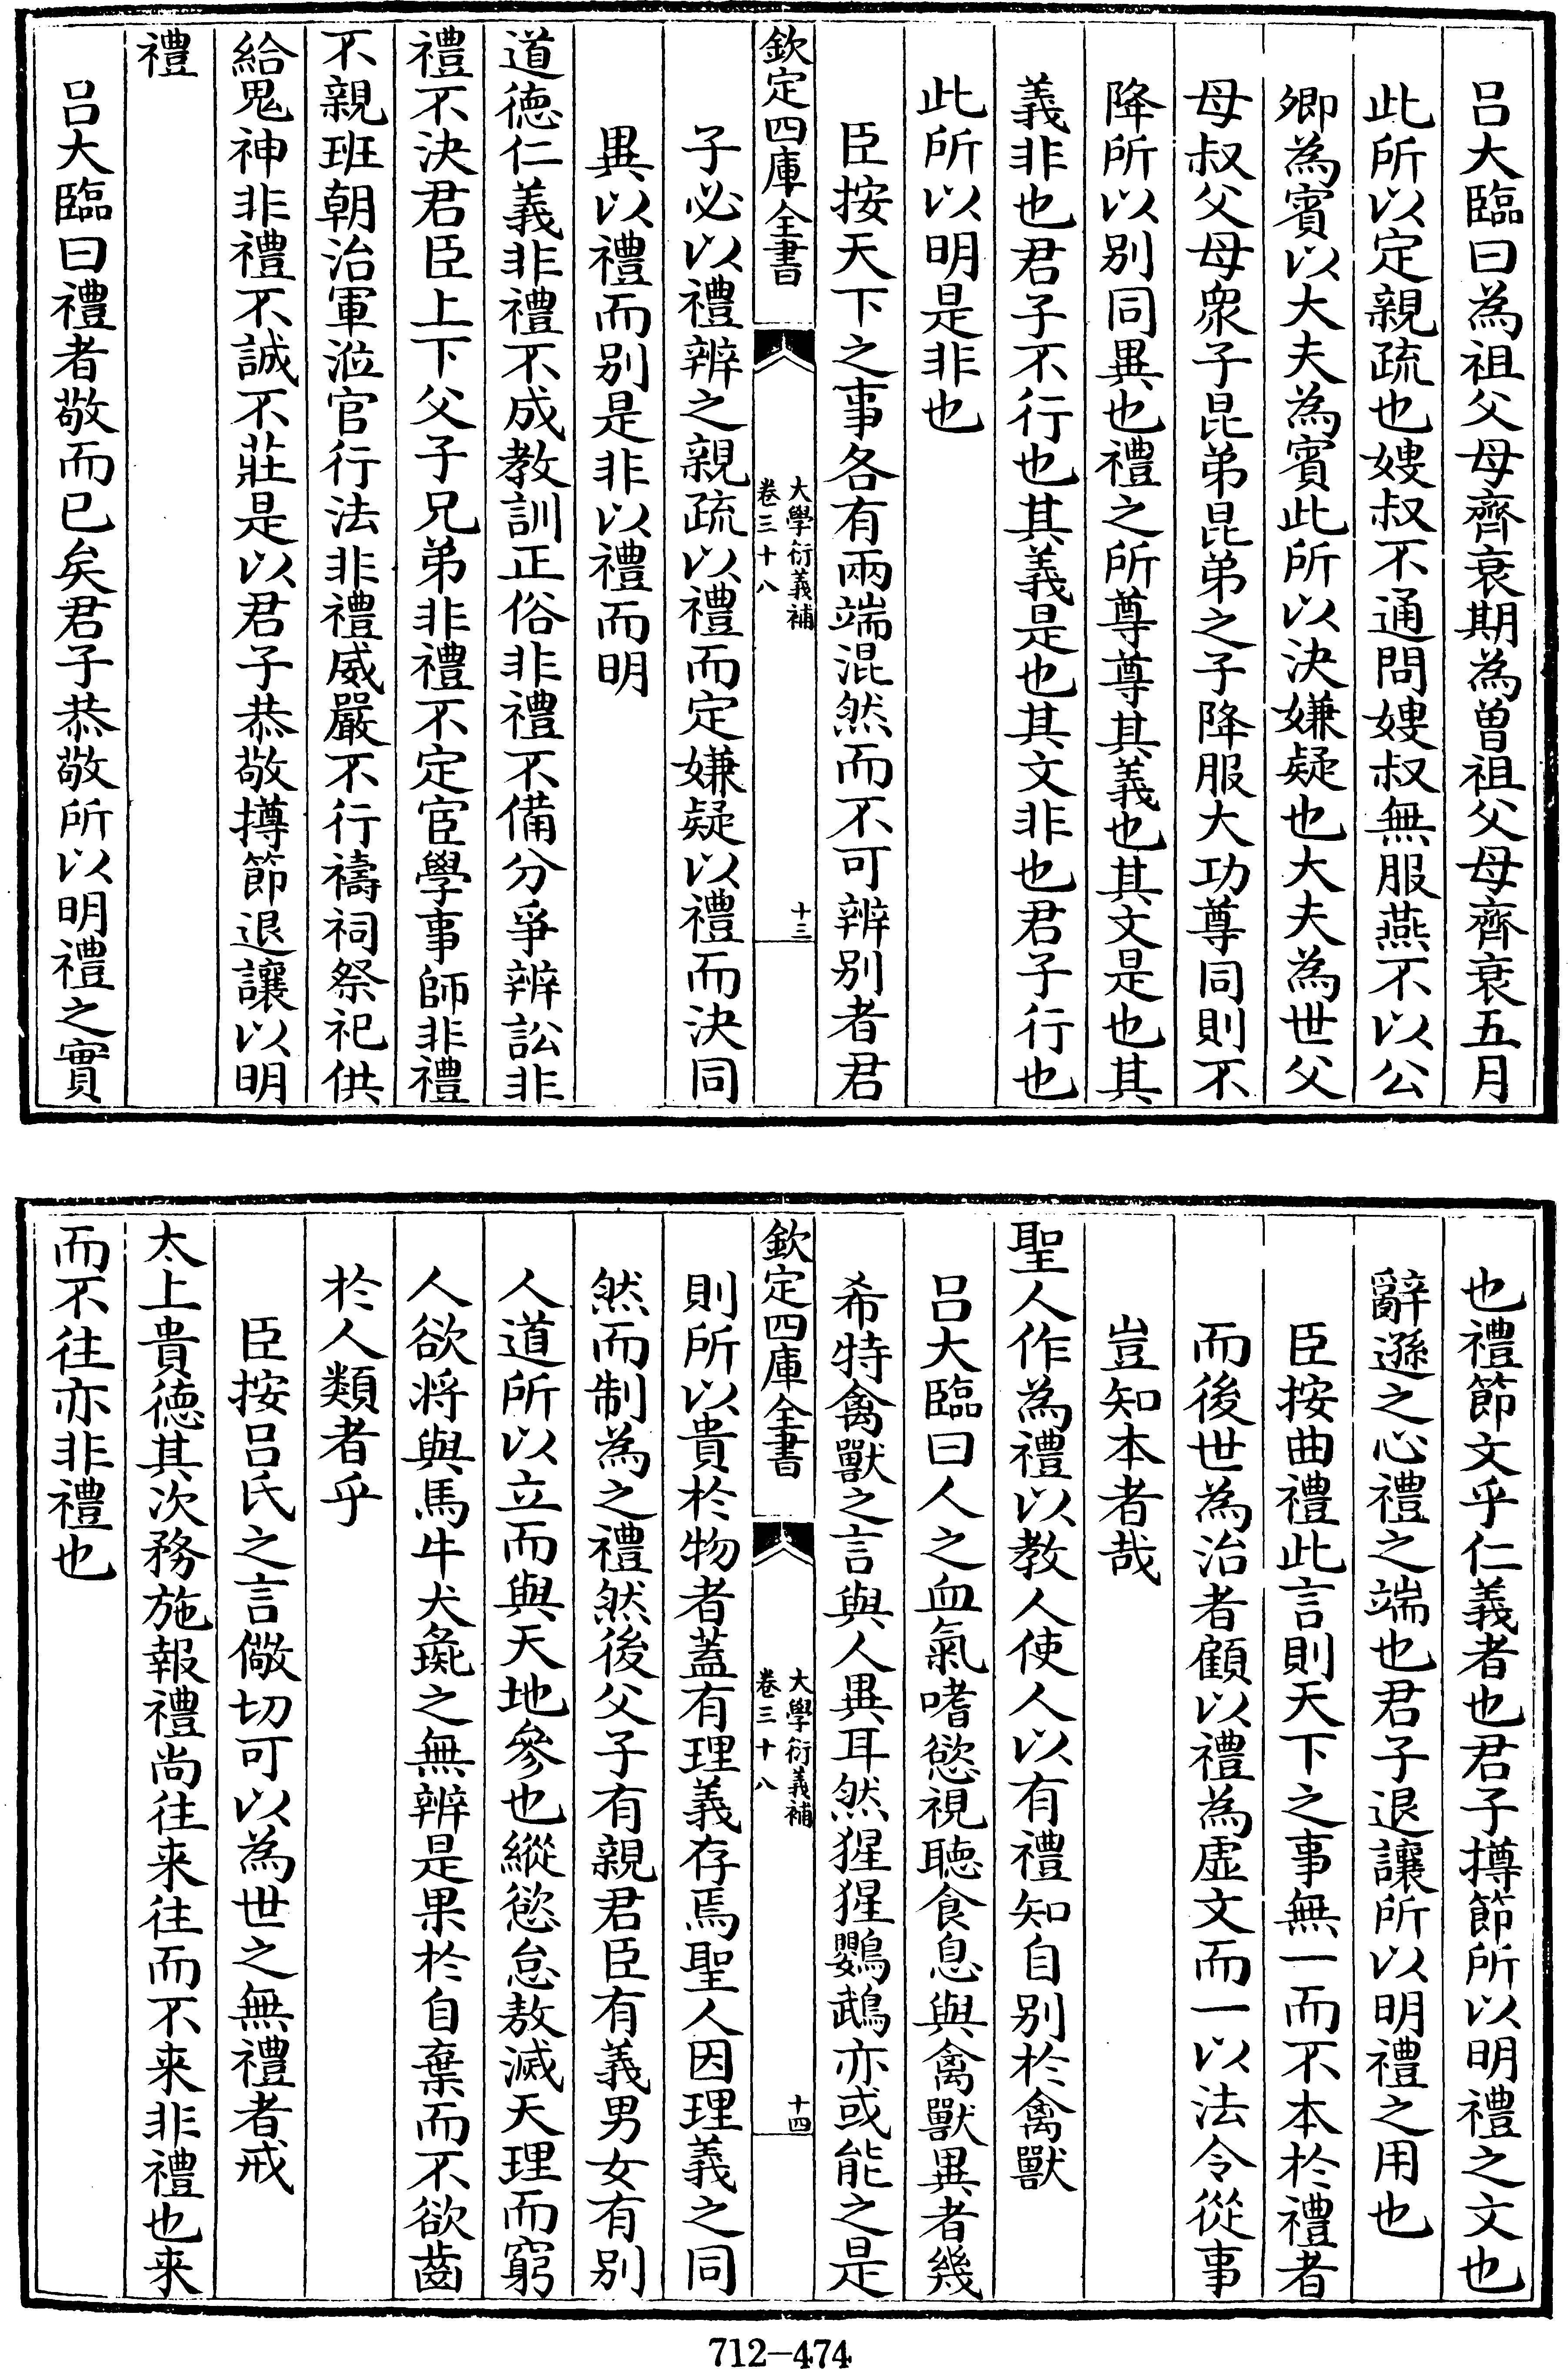 吕大臨曰為祖父母齊衰期為曽祖父母齊衰五月
此所以定親疏也嫂叔不通問嫂叔無服燕不以公
卿為賓以大夫為賓此所以決嫌疑也大夫為世父
母叔父母衆子昆弟昆弟之子降服大功尊同則不
降所以别同異也禮之所尊尊其義也其文是也其
義非也君子不行也其義是也其文非也君子行也
此所以明是非也
臣按天下之事各有兩端混然而不可辨别者君
欽定四庫全書
大學衍義補
卷三十八
十三
子必以禮辨之親疏以禮而定嫌疑以禮而決同
異以禮而别是非以禮而明
道德仁義非禮不成教訓正俗非禮不備分爭辨訟非
禮不決君臣上下父子兄弟非禮不定宦學事師非禮
不親班朝治軍涖官行法非禮威嚴不行禱祠祭祀供
給鬼神非禮不誠不莊是以君子恭敬撙節退讓以明
禮
吕大臨曰禮者敬而已矣君子恭敬所以明禮之實
也禮節文乎仁義者也君子撙節所以明禮之文也
辭遜之心禮之端也君子退讓所以明禮之用也
臣按曲禮此言則天下之事無一而不本於禮者
而後世為治者顧以禮為虚文而一以法令從事
豈知本者哉
聖人作為禮以教人使人以有禮知自别於禽獸
吕大臨曰人之血氣嗜慾視聴食息與禽獸異者幾
希特禽獸之言與人異耳然猩猩鸚鵡亦或能之是
欽定四庫全書
大學衍義補
卷三十八
十四
則所以貴於物者蓋有理義存焉聖人因理義之同
然而制為之禮然後父子有親君臣有義男女有别
人道所以立而與天地參也縱慾怠敖滅天理而窮
人欲将與馬牛犬彘之無辨是果於自棄而不欲齒
於人類者乎
臣按吕氏之言儆切可以為世之無禮者戒
太上貴徳其次務施報禮尚往来往而不来非禮也来
而不往亦非禮也
712-474